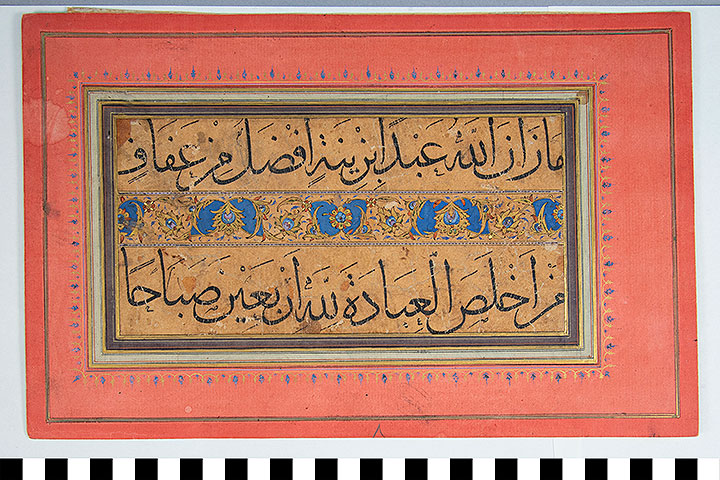 ما زان الله عبدا بزينة افضل من عفاف
من اخلص العبادة لله اربعين صباحا